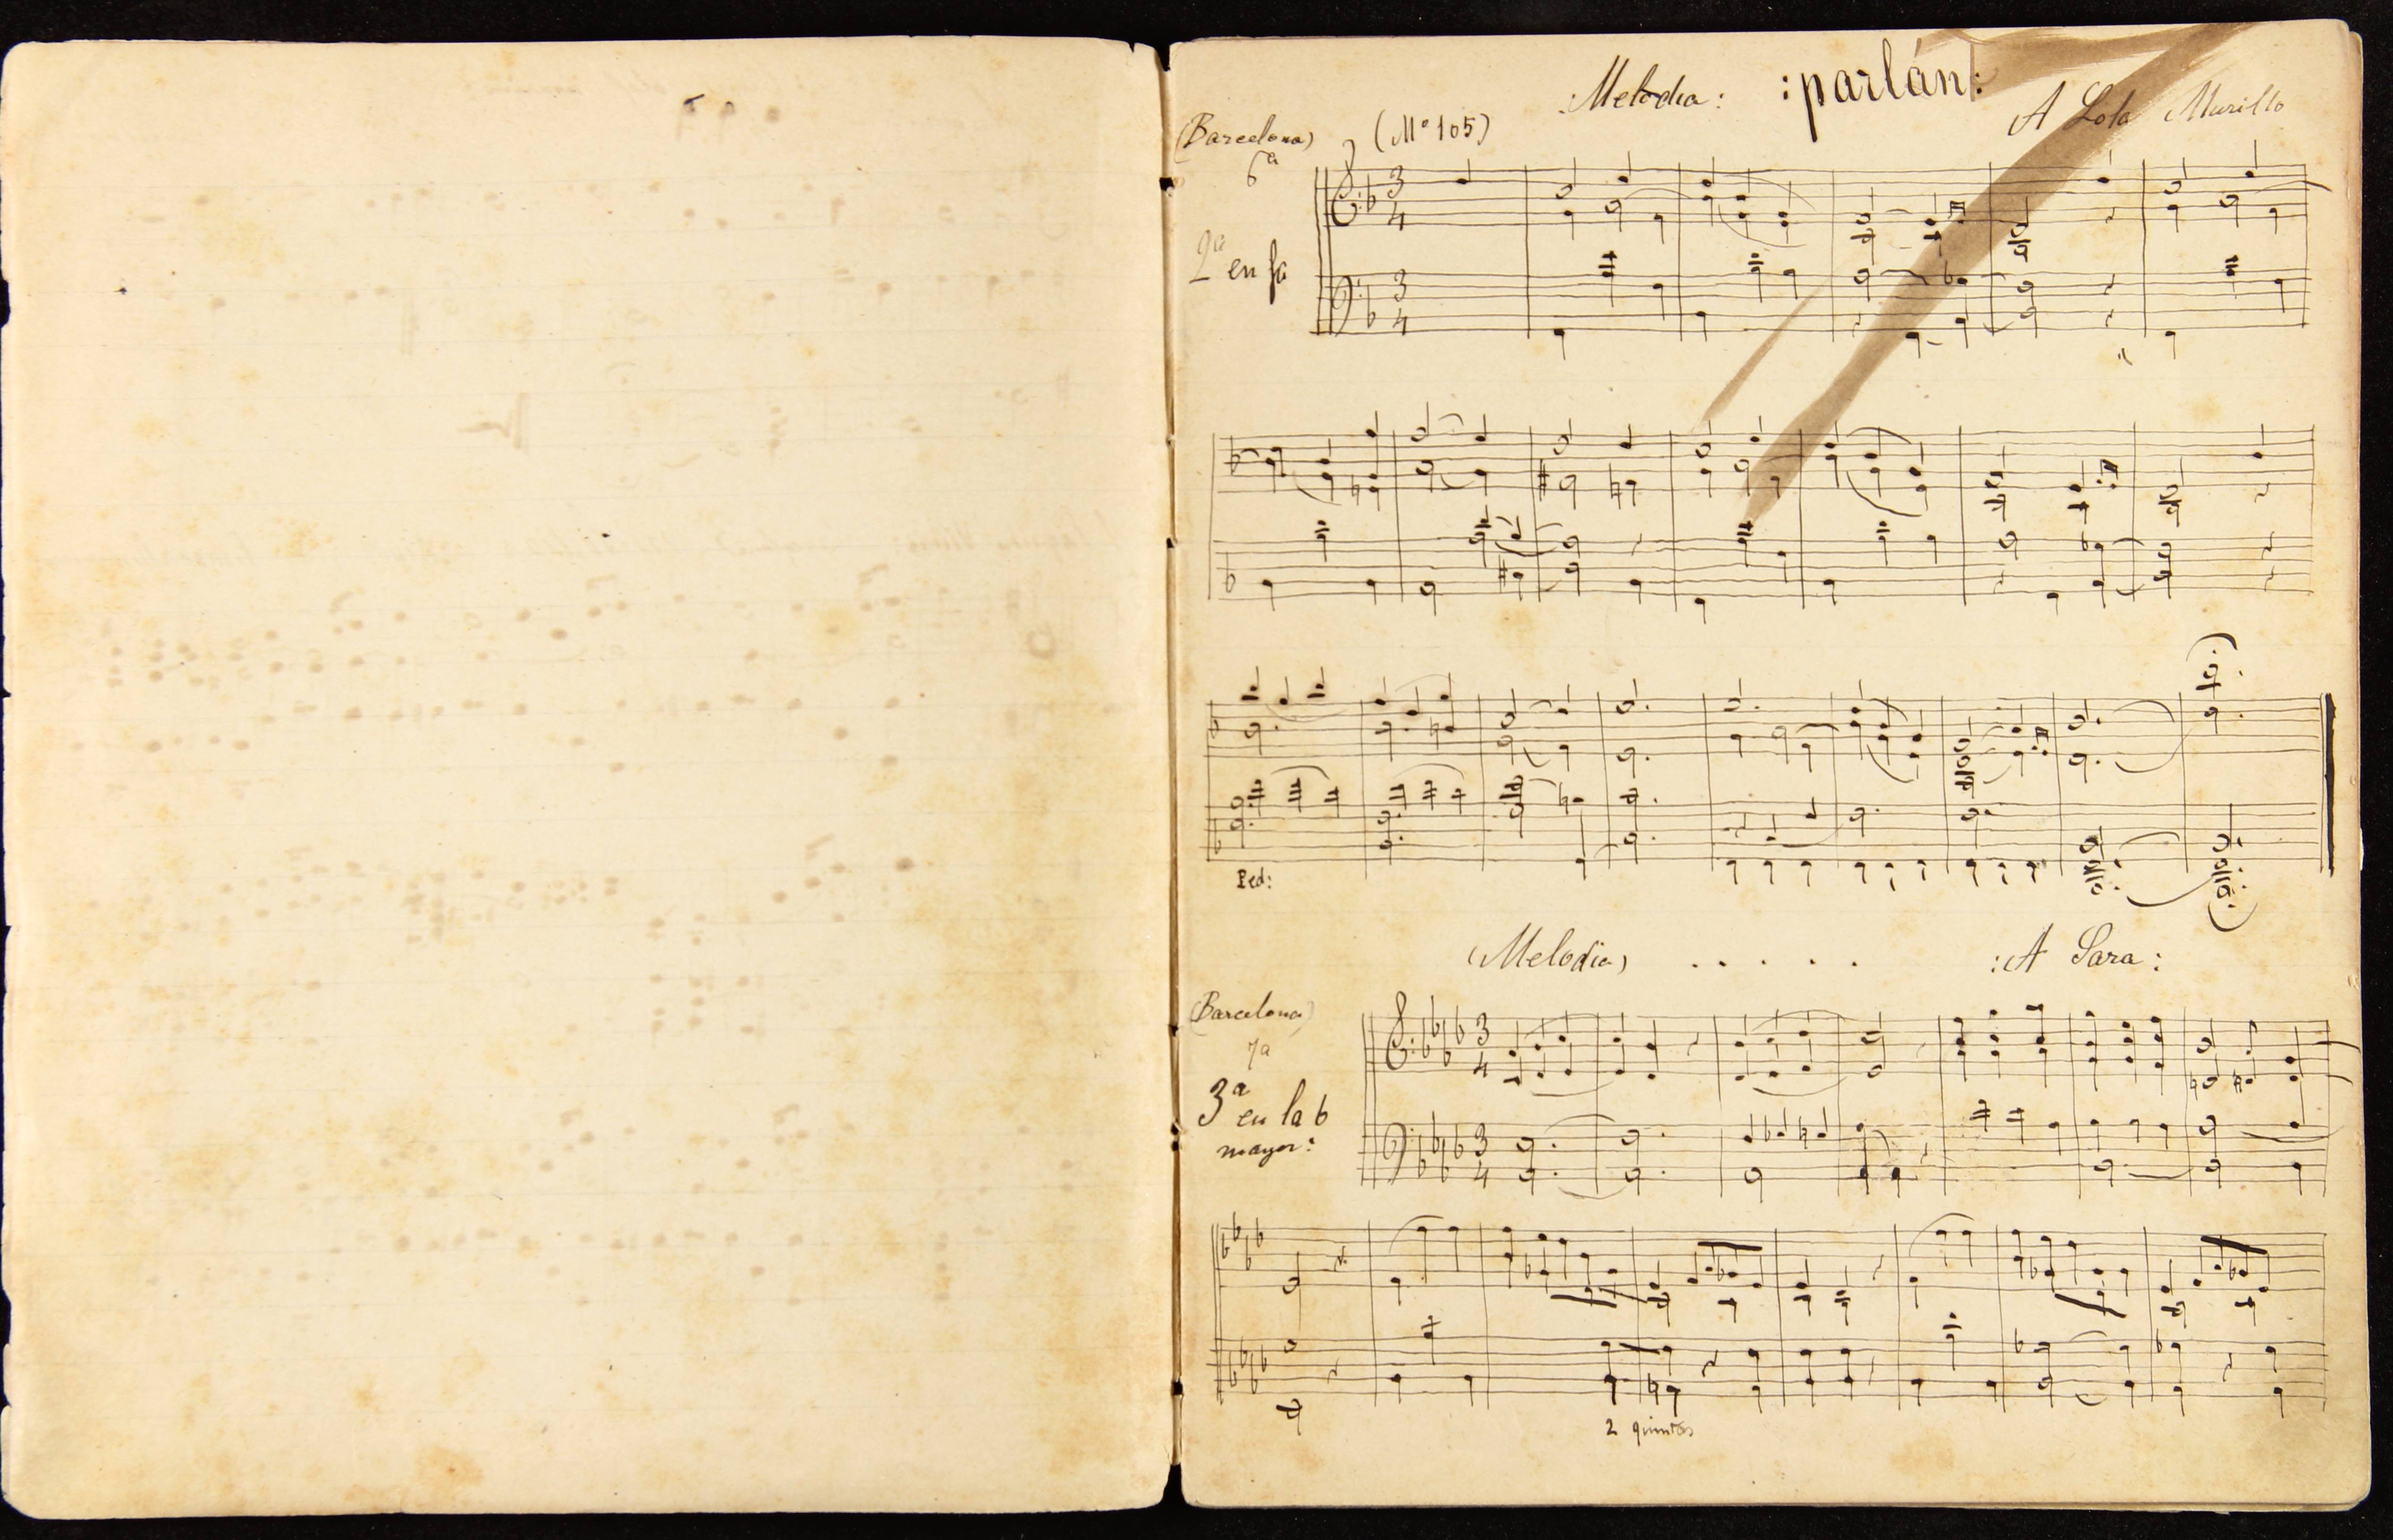 :Melodia: :parlán:
A Lola Murillo
(Barcelona) (Mº 105)
6ª
2ª en fa
3
4
3
4
Ped:
(Melodia) . . . . . :A Sara:
(Barcelona)
7ª
3ª en la b
mayor:
3
4
3
4
2 quintas